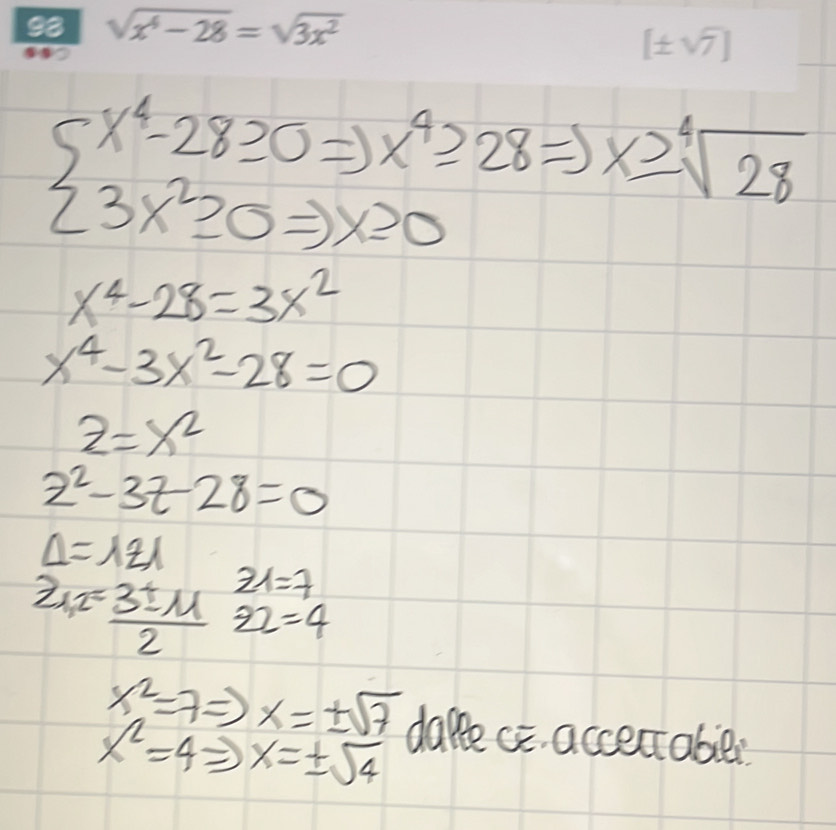 98 √(x⁴ − 28) = √(3x²) [± √7]
{ x⁴-28≥0 ⇒ x⁴≥28 ⇒ x≥⁴√28
{ 3x²≥0 ⇒ x≥0
x⁴-28=3x²
x⁴-3x²-28=0
z=x²
z²-3z-28=0
Δ=121
z1,2=(3±11)/2 z1=7
z2=4
x²=7 ⇒ x=±√7
x²=4 ⇒ x=±√4 dalle CE. accettabili.